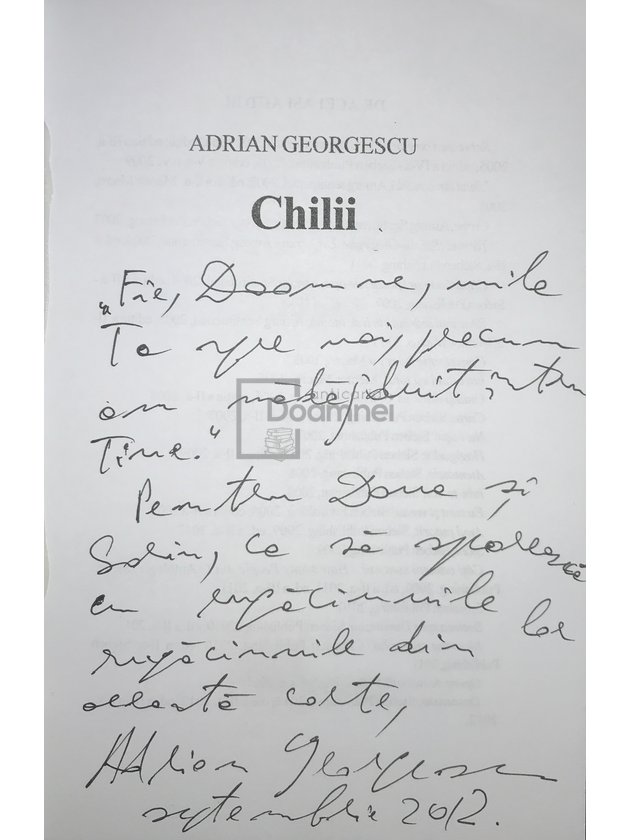 ADRIAN GEORGESCU
Chilii
„Fie, Doamne, mila
Ta spre noi, precum
am nădăjduit întru
Tine."
anticariat
Doamnei
Pentru Dana și
Sorin, ca să sporească
cu rugăciunile lor
rugăciunile din
această carte,
Adrian Georgescu
septembrie 2012.